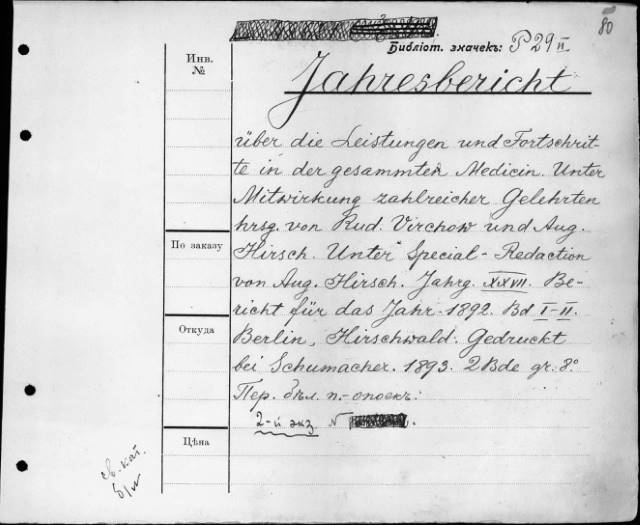 80
Библіот. значекъ: P 29 II
Инв.
№
Jahresbericht
über die Leistungen und Fortschrit-
te in der gesammten Medicin. Unter
Mitwirkung zahlreicher Gelehrten
hrsg. von Rud. Virchow und Aug.
По заказу
Hirsch. Unter Special-Redaction
von Aug. Hirsch. Jahrg. XXVII. Be-
richt für das Jahr 1892. Bd I-II.
Откуда
Berlin, Hirschwald. Gedruckt
bei Schumacher. 1893. 2 Bde gr. 8°
Пер. бѣл. п.-опоек:
2-й экз N
Цѣна
св. кат.